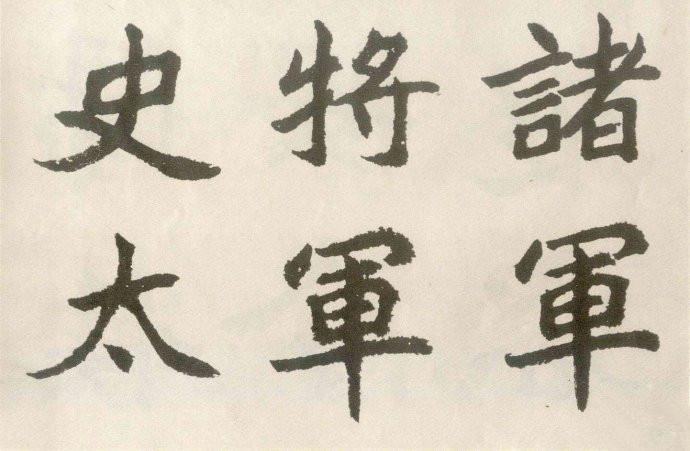 諸軍
將軍
史太